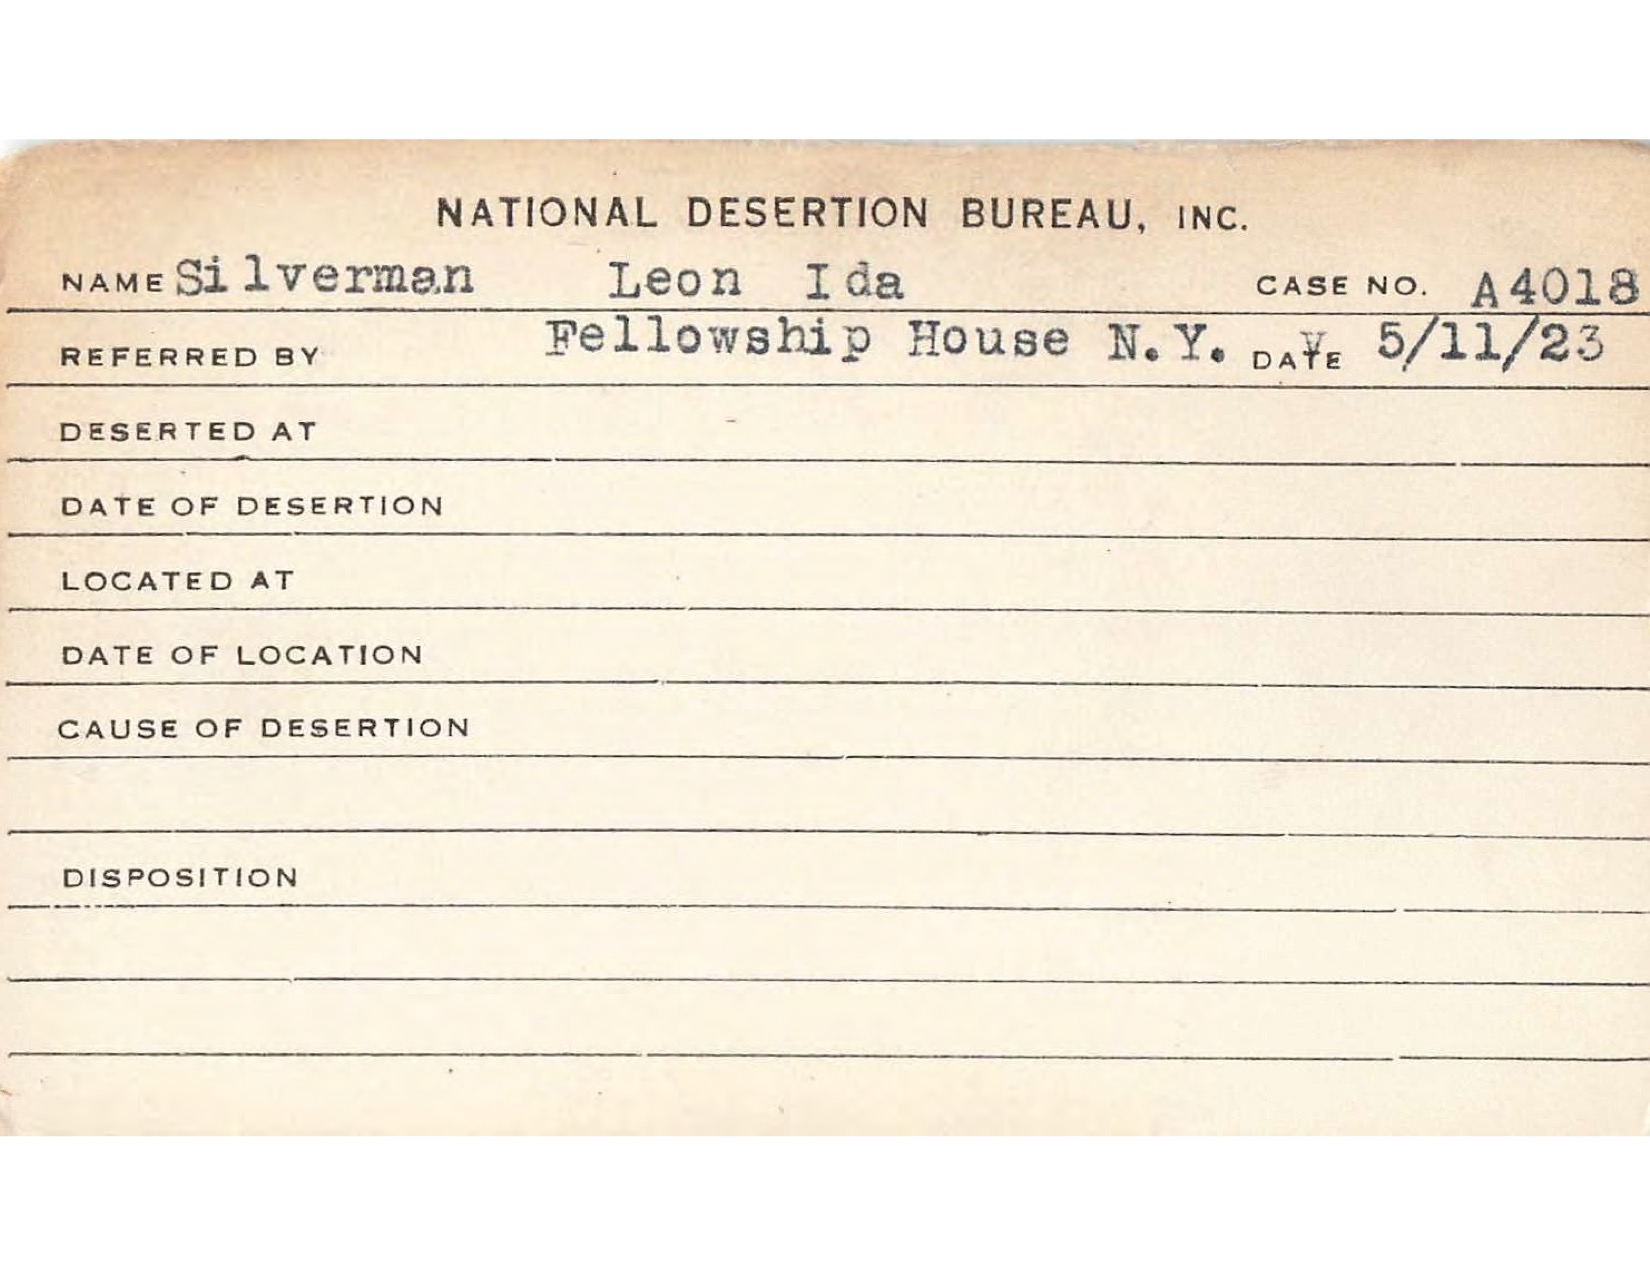 NATIONAL DESERTION BUREAU, INC.
NAME Silverman Leon Ida CASE NO. A4018
REFERRED BY Fellowship House N.Y. DATE 5/11/23
DESERTED AT
DATE OF DESERTION
LOCATED AT
DATE OF LOCATION
CAUSE OF DESERTION
DISPOSITION